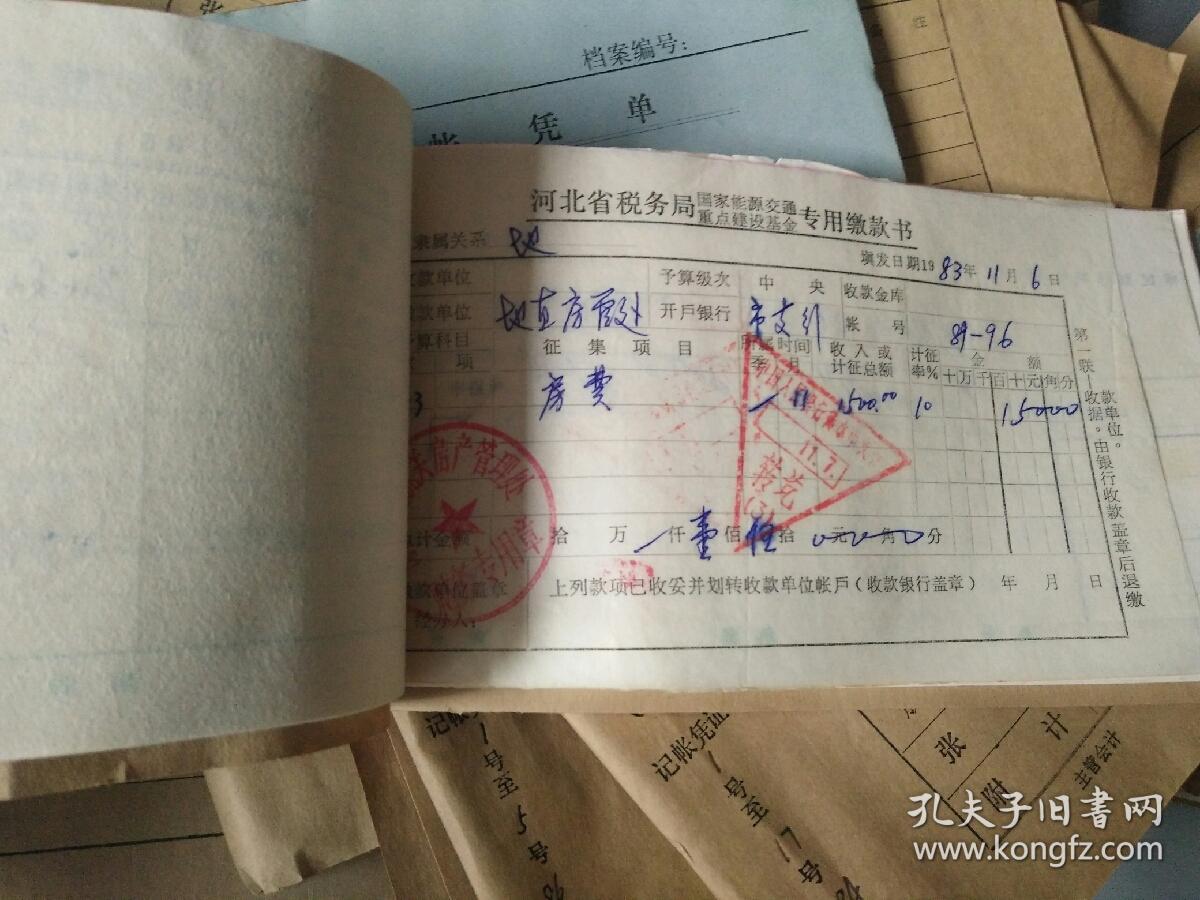 张
注
档案编号：
凭 单
河北省税务局 国家能源交通重点建设基金 专用缴款书
隶属关系 地
填发日期19 83年 11月 6日
款单位 予算级次 中央 收款金库
款单位 地直房管处 开戶银行 市支行 帐号 89-96
予算科目 征集项目 所属时间 收入或计征总额 计征率% 金额
项 季 月 十万千百十元角分
房费 11 1500.00 10 15000
房产管理处
专用章
11.7.
转讫
计金额 拾 万 仟 壹 佰 伍 拾 元 角 分
款单位盖章 上列款项已收妥并划转收款单位帐戶（收款银行盖章） 年 月 日
经办人：
第一联—收据。由银行收款盖章后退缴款单位。
记帐凭证
1号至5号
记帐凭证
1号至17号
张
附
计
主管会计
孔夫子旧书网
www.kongfz.com